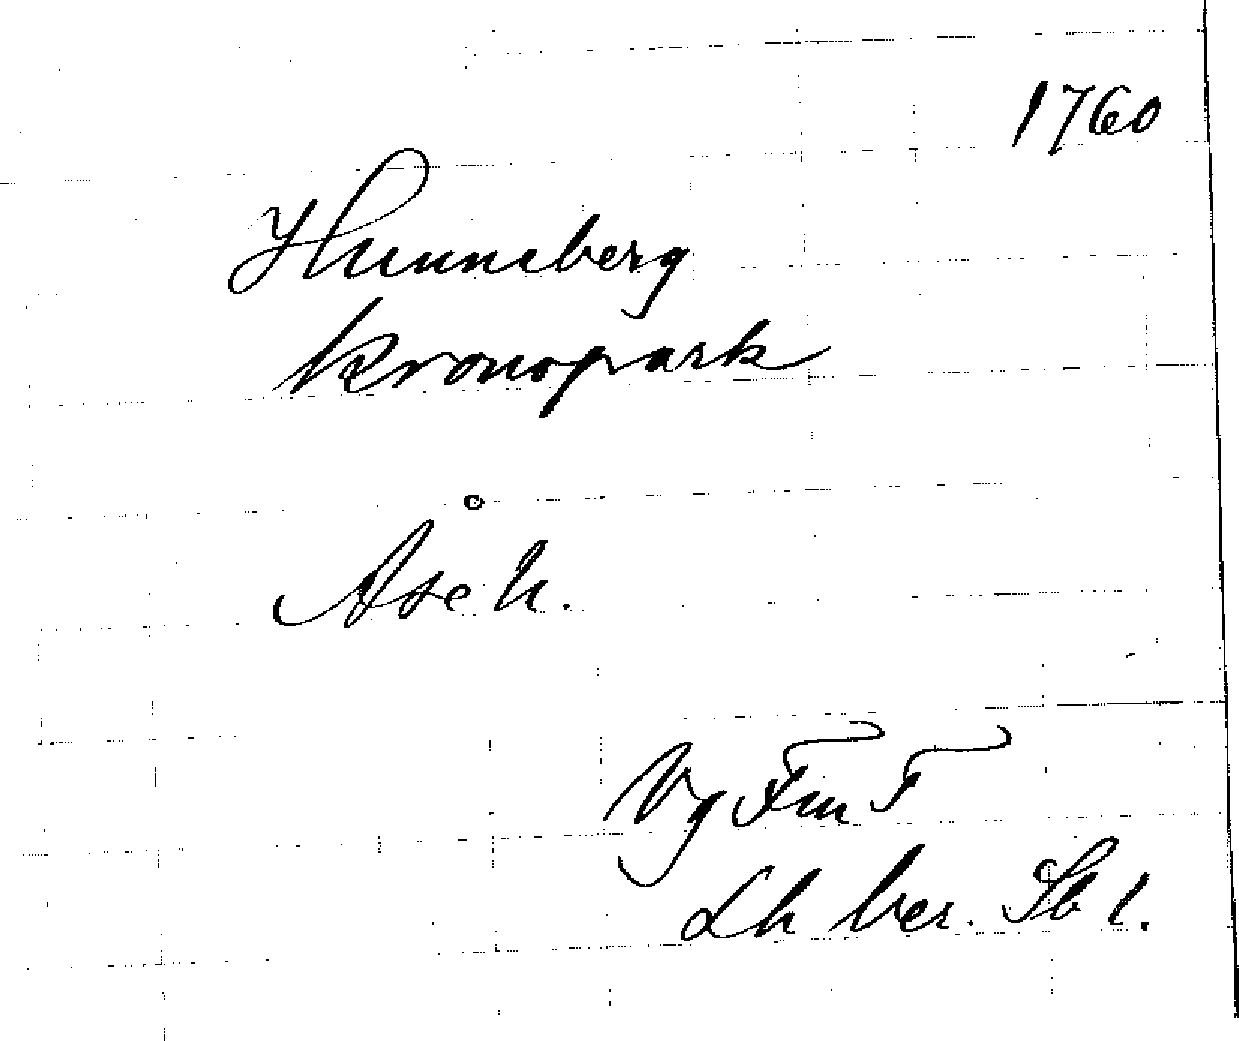 1760
Hunneberg
Kronopark
Åse h.
Vg FmF
Lh ber. Sb 1.